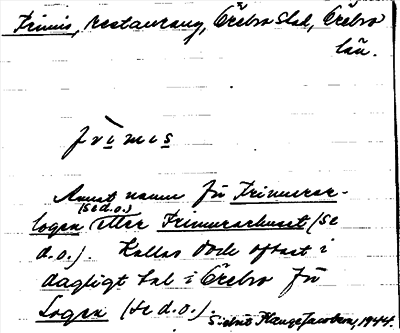 Frimis, restaurang, Örebro stad, Örebro
län.
frìmis
Annat namn för Frimurar-
logen (se d.o.) eller Frimurarhuset (se
d.o.). Kallas dock oftast i
dagligt tal i Örebro för
Logen (se d.o.).
Sidné Hauge Jacobson, 1944.